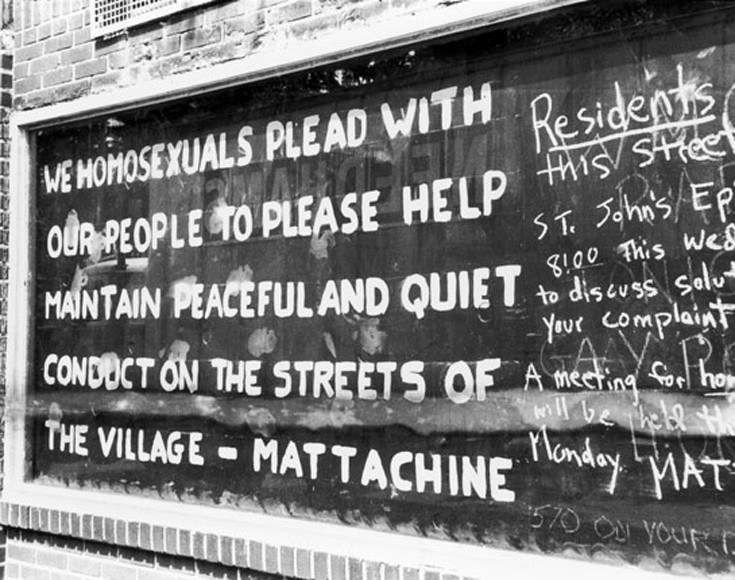 WE HOMOSEXUALS PLEAD WITH
OUR PEOPLE TO PLEASE HELP
MAINTAIN PEACEFUL AND QUIET
CONDUCT ON THE STREETS OF
THE VILLAGE — MATTACHINE
Residents
this street
ST. John's Ep
8:00 This Wed
to discuss solut
your complaint
A meeting for hom
will be held th
Monday. MATT
5/0 ON YOUR